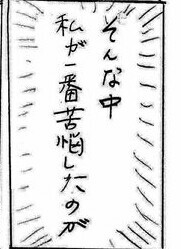 そんな中
私が一番苦悩したのが